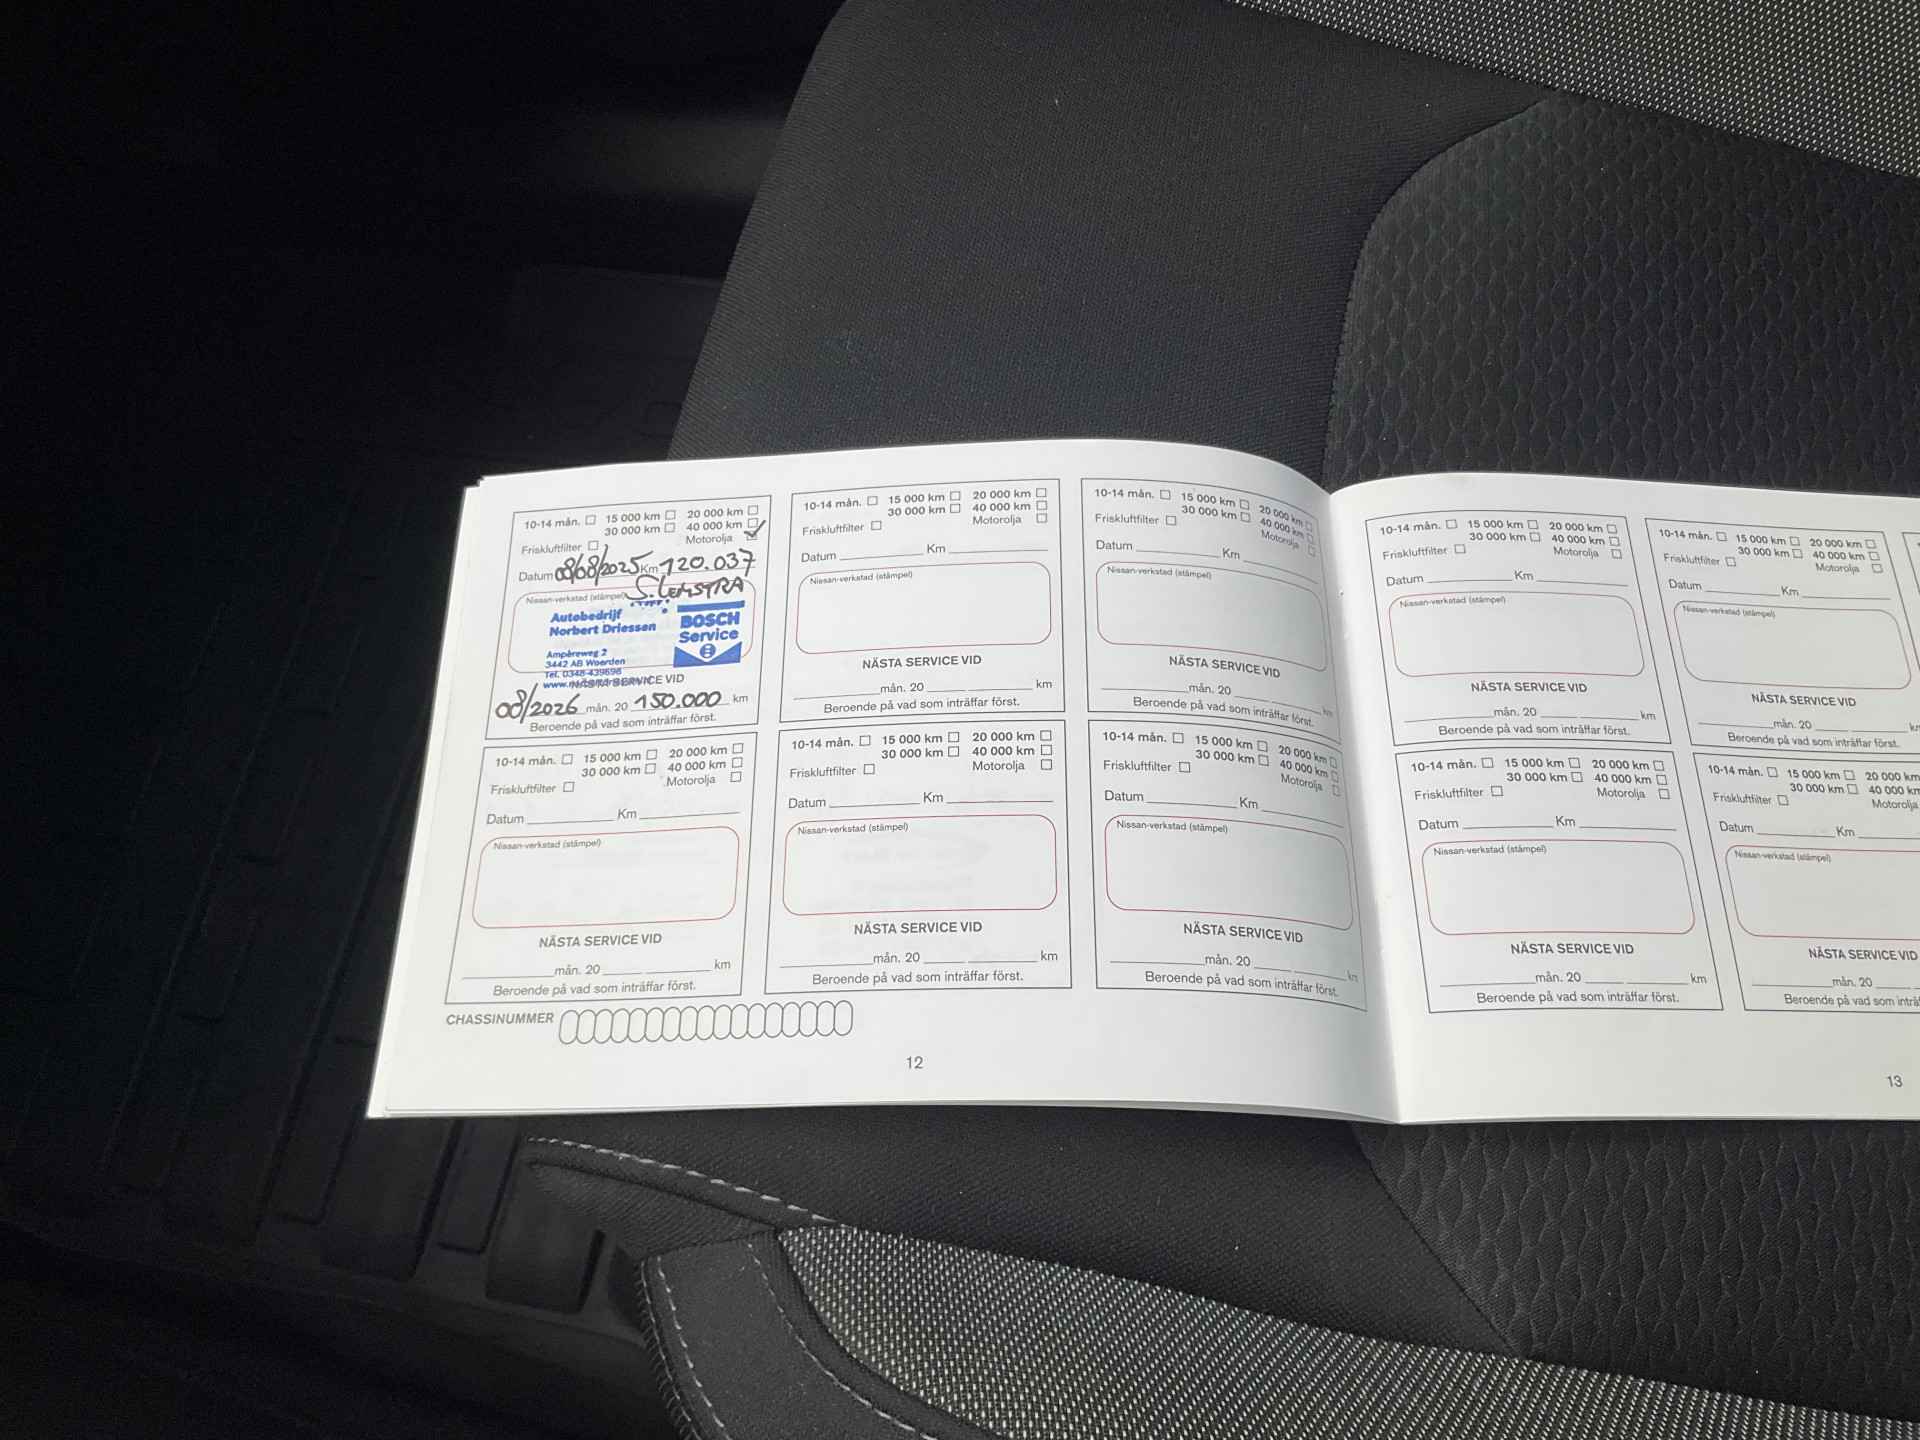 10-14 mån. 15 000 km 20 000 km
30 000 km 40 000 km
Friskluftfilter Motorolja
Datum 08/08/2025 Km 120.037
Nissan-verkstad (stämpel) S. LEMSTRA
Autobedrijf
Norbert Driessen
BOSCH
Service
Ampèreweg 2
3442 AB Woerden
Tel. 0348-439696
NÄSTA SERVICE VID
08/2026 mån. 20 150.000 km
Beroende på vad som inträffar först.
10-14 mån. 15 000 km 20 000 km
30 000 km 40 000 km
Friskluftfilter Motorolja
Datum Km
Nissan-verkstad (stämpel)
NÄSTA SERVICE VID
mån. 20 km
Beroende på vad som inträffar först.
10-14 mån. 15 000 km 20 000 km
30 000 km 40 000 km
Friskluftfilter Motorolja
Datum Km
Nissan-verkstad (stämpel)
NÄSTA SERVICE VID
mån. 20 km
Beroende på vad som inträffar först.
10-14 mån. 15 000 km 20 000 km
30 000 km 40 000 km
Friskluftfilter Motorolja
Datum Km
Nissan-verkstad (stämpel)
NÄSTA SERVICE VID
mån. 20 km
Beroende på vad som inträffar först.
10-14 mån. 15 000 km 20 000 km
30 000 km 40 000 km
Friskluftfilter Motorolja
Datum Km
Nissan-verkstad (stämpel)
NÄSTA SERVICE VID
mån. 20 km
Beroende på vad som inträffar först.
10-14 mån. 15 000 km 20 000 km
30 000 km 40 000 km
Friskluftfilter Motorolja
Datum Km
Nissan-verkstad (stämpel)
NÄSTA SERVICE VID
mån. 20 km
Beroende på vad som inträffar först.
CHASSINUMMER
12
10-14 mån. 15 000 km 20 000 km
30 000 km 40 000 km
Friskluftfilter Motorolja
Datum Km
Nissan-verkstad (stämpel)
NÄSTA SERVICE VID
mån. 20 km
Beroende på vad som inträffar först.
10-14 mån. 15 000 km 20 000 km
30 000 km 40 000 km
Friskluftfilter Motorolja
Datum Km
Nissan-verkstad (stämpel)
NÄSTA SERVICE VID
mån. 20
Beroende på vad som inträffar först.
10-14 mån. 15 000 km 20 000 km
30 000 km 40 000 km
Friskluftfilter Motorolja
Datum Km
Nissan-verkstad (stämpel)
NÄSTA SERVICE VID
mån. 20 km
Beroende på vad som inträffar först.
10-14 mån. 15 000 km 20 000 km
30 000 km 40 000
Friskluftfilter Motorolja
Datum Km
Nissan-verkstad (stämpel)
NÄSTA SERVICE VID
mån. 20
Beroende på vad som
13